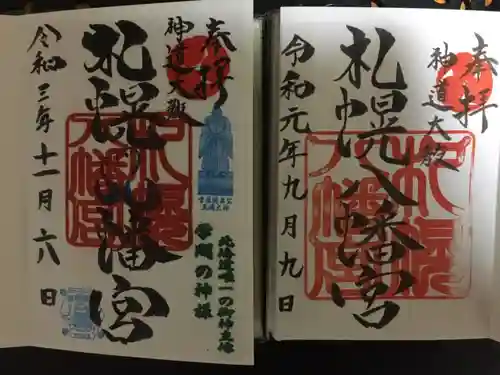 奉拝
神道大教
札幌八幡宮
令和元年九月九日
札幌
八幡宮
奉拝
神道大教
札幌八幡宮
令和三年十一月六八日
札幌
八幡宮
北海道唯一の御神主様
学問の神様